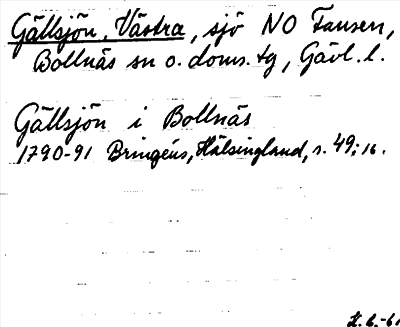 Gällsjön, Västra, sjö NO Fansen,
Bollnäs sn o. doms. tg, Gävl. l.
Gällsjön i Bollnäs
1790-91 Bringéus, Hälsingland, s. 49; 16.